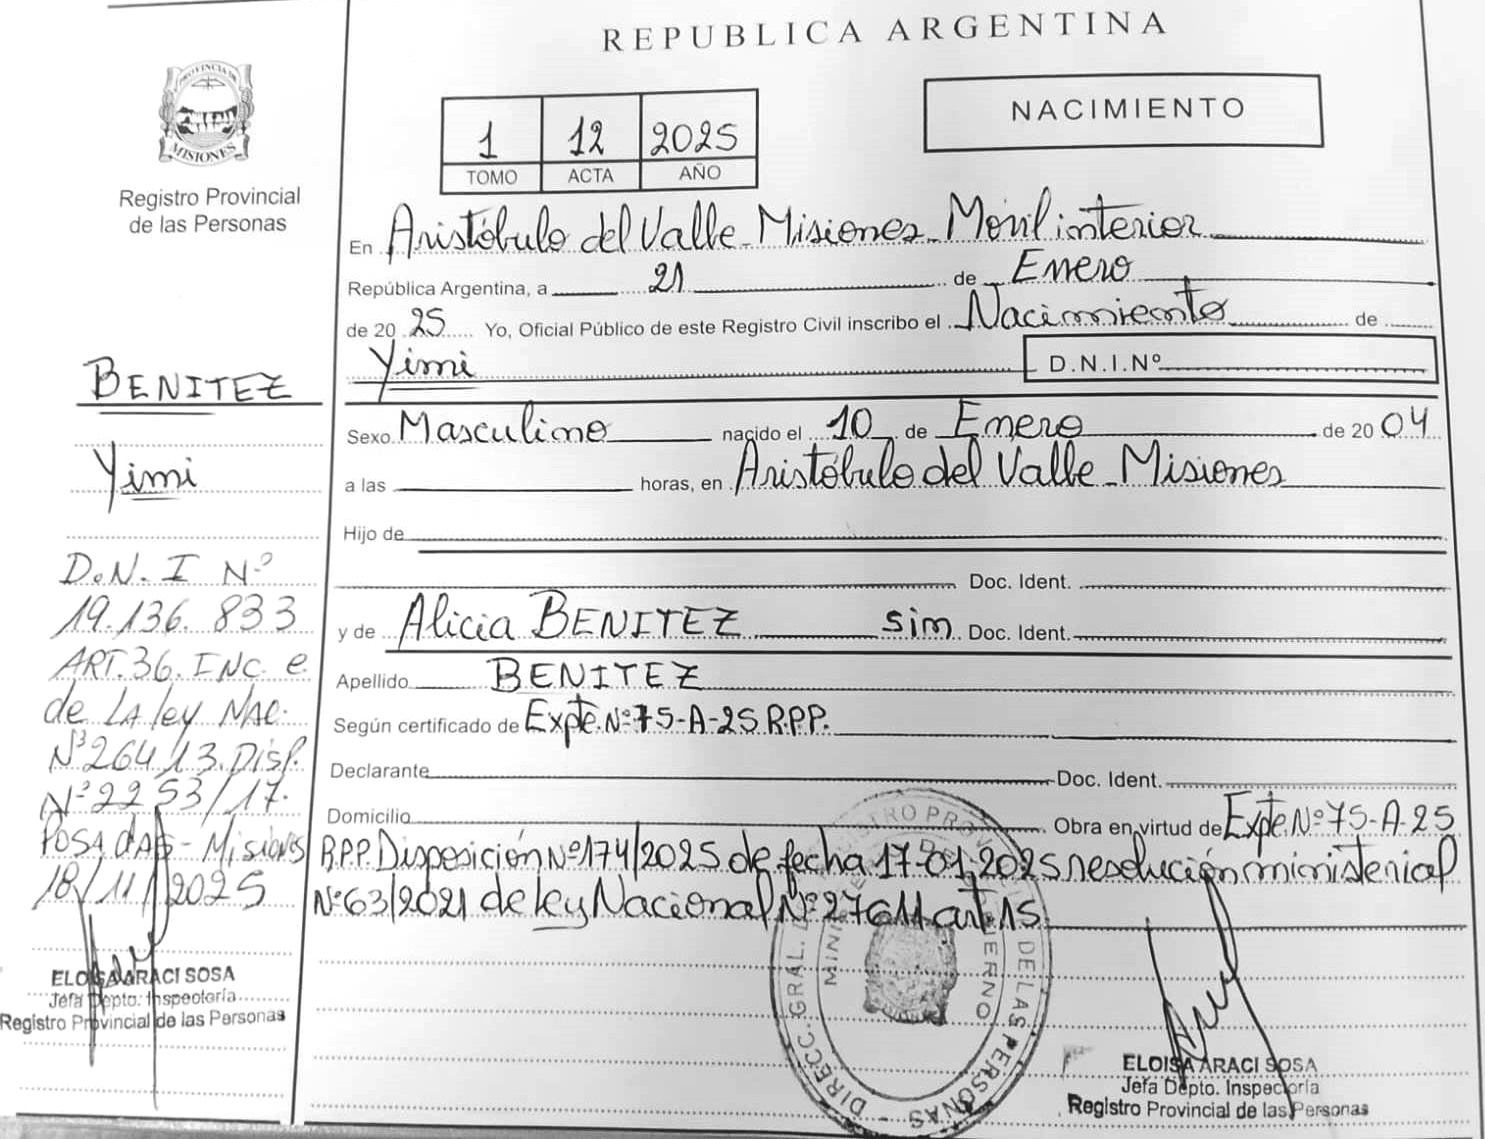 REPUBLICA ARGENTINA
PROVINCIA DE
MISIONES
Registro Provincial
de las Personas
1 12 2025
TOMO ACTA AÑO
NACIMIENTO
En Aristóbulo del Valle - Misiones - Móvil interior
República Argentina, a 21 de Enero
de 2025 Yo, Oficial Público de este Registro Civil inscribo el Nacimiento de
Yimi D.N.I.Nº
Sexo Masculino nacido el 10 de Enero de 2004
a las horas, en Aristóbulo del Valle - Misiones
Hijo de
Doc. Ident.
y de Alicia BENITEZ sin Doc. Ident.
Apellido BENITEZ
Según certificado de Expte. Nº 75-A-25 R.P.P.
Declarante Doc. Ident.
Domicilio Obra en virtud de Expte. Nº 75-A-25
R.P.P. Disposición Nº 174/2025 de fecha 17-01-2025 resolución ministerial
Nº 63/2021 de ley Nacional Nº 27611 art. 15
BENITEZ
Yimi
D.N.I Nº
19.136.833
ART.36. INC. e.
de LA ley NAC.
Nº 26413. Disp.
Nº 2253/17.
POSADAS - Misiones
18/11/2025
ELOISA ARACI SOSA
Jefa Depto. Inspectoría
Registro Provincial de las Personas
DIRECC. GRAL. DE LAS PERSONAS
ELOISA ARACI SOSA
Jefa Depto. Inspectoría
Registro Provincial de las Personas